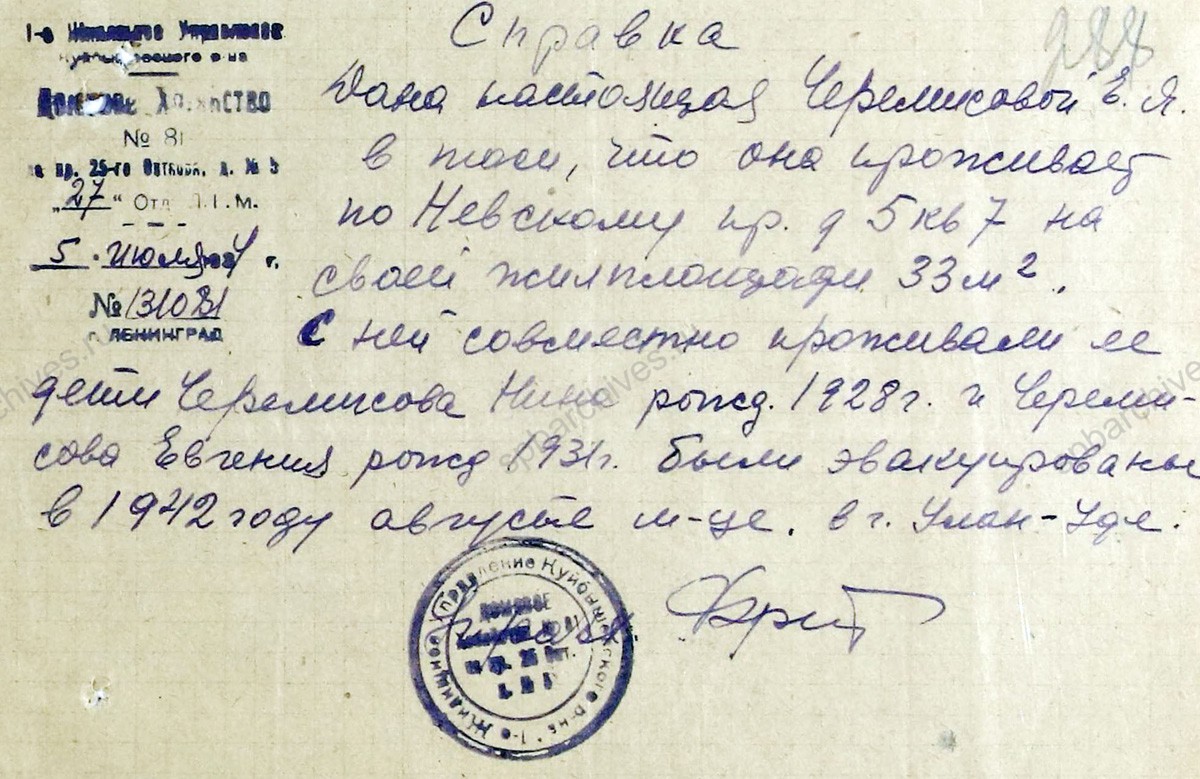 Справка
288
1-е Жилищное Управление
Куйбышевского р-на
Домовое Хозяйство
№ 81
по пр. 25-го Октября, д. № 5
„27“ Отд. Л.Г.М.
5 · июля 4 г.
№ 131081
г. ЛЕНИНГРАД
Дана настоящая Черемисовой Е. Я.
в том, что она проживает
по Невскому пр. д 5 кв 7 на
своей жилплощади 33 м².
С ней совместно проживали ее
дети Черемисова Нина рожд. 1928 г. и Череми-
сова Евгения рожд 1931 г. были эвакуированы
в 1942 году августе м-це. в г. Улан-Удэ.
1-е Жилищное Управление Куйбышевского р-на
ДОМОВОЕ
хозяйство № 81
по пр. 25 Окт.
д. № 5
spbarchives.ru